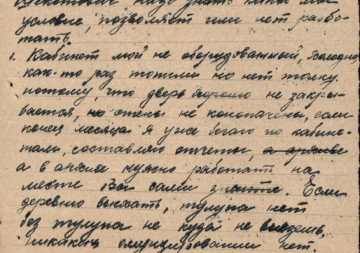 надо знать какие мои
условие, позволяют или нет рабо-
тать.
1. Кабинет мой не оборудованный, холодно
как-то раз топили но нет толку.
потому, что дверь хорошо не закры-
вается, но стены не конопачены, если
конец месяца я уже бегаю по кабине-
там, составляю отчеты, а
а в ните нужно работать на
месте сами з месте. Если
деревню выехать, тулупа нет
без тулупа не куда не выедешь,
никаких нет.